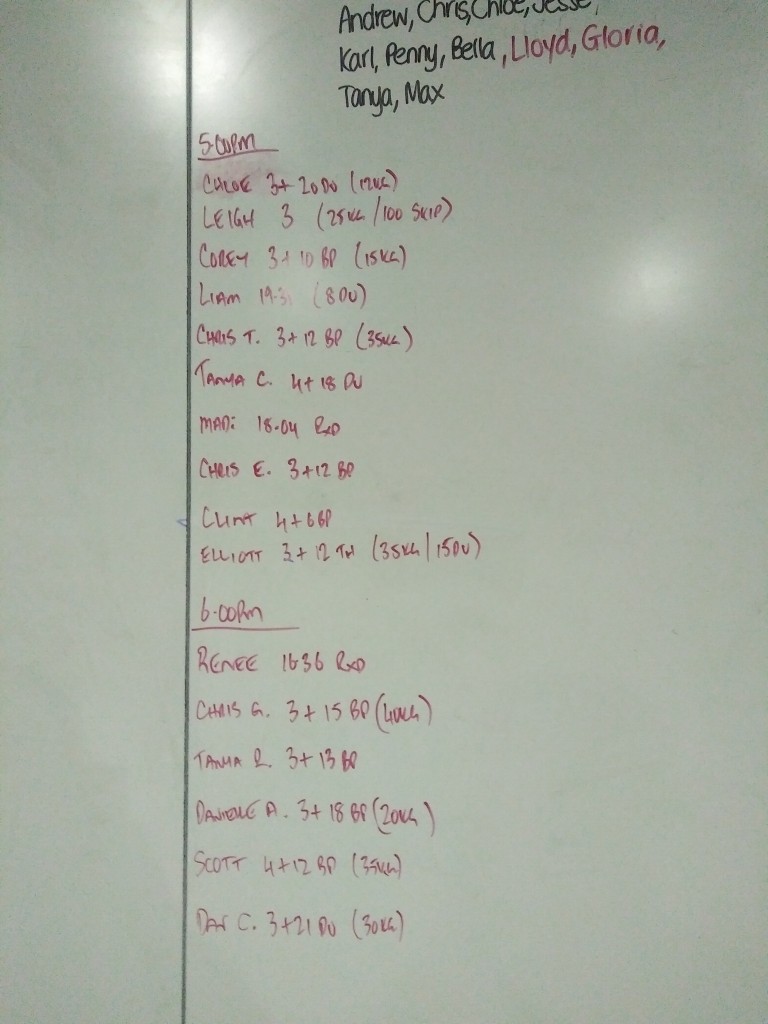 Andrew, Chris, Chloe, Jesse,
Karl, Penny, Bella, Lloyd, Gloria,
Tanya, Max
5-00PM
CHLOE 3+ 20 DU (12KG)
LEIGH 3 (25KG/100 SKIP)
COREY 3+10 BP (15KG)
LIAM 19.3 (8DU)
CHRIS T. 3+12 BP (35KG)
TANYA C. 4+18 DU
MADi 18.04 RXD
CHRIS E. 3+12 BP
CLINT 4+6BP
ELLIOTT 3+12 TH (35KG/15DU)
6-00PM
RENEE 16-36 RXD
CHRIS G. 3+15 BP (40KG)
TANYA R. 3+13 BP
DANIELLE A. 3+18 BP (20KG)
SCOTT 4+12 BP (35KG)
DAN C. 3+21 DU (30KG)